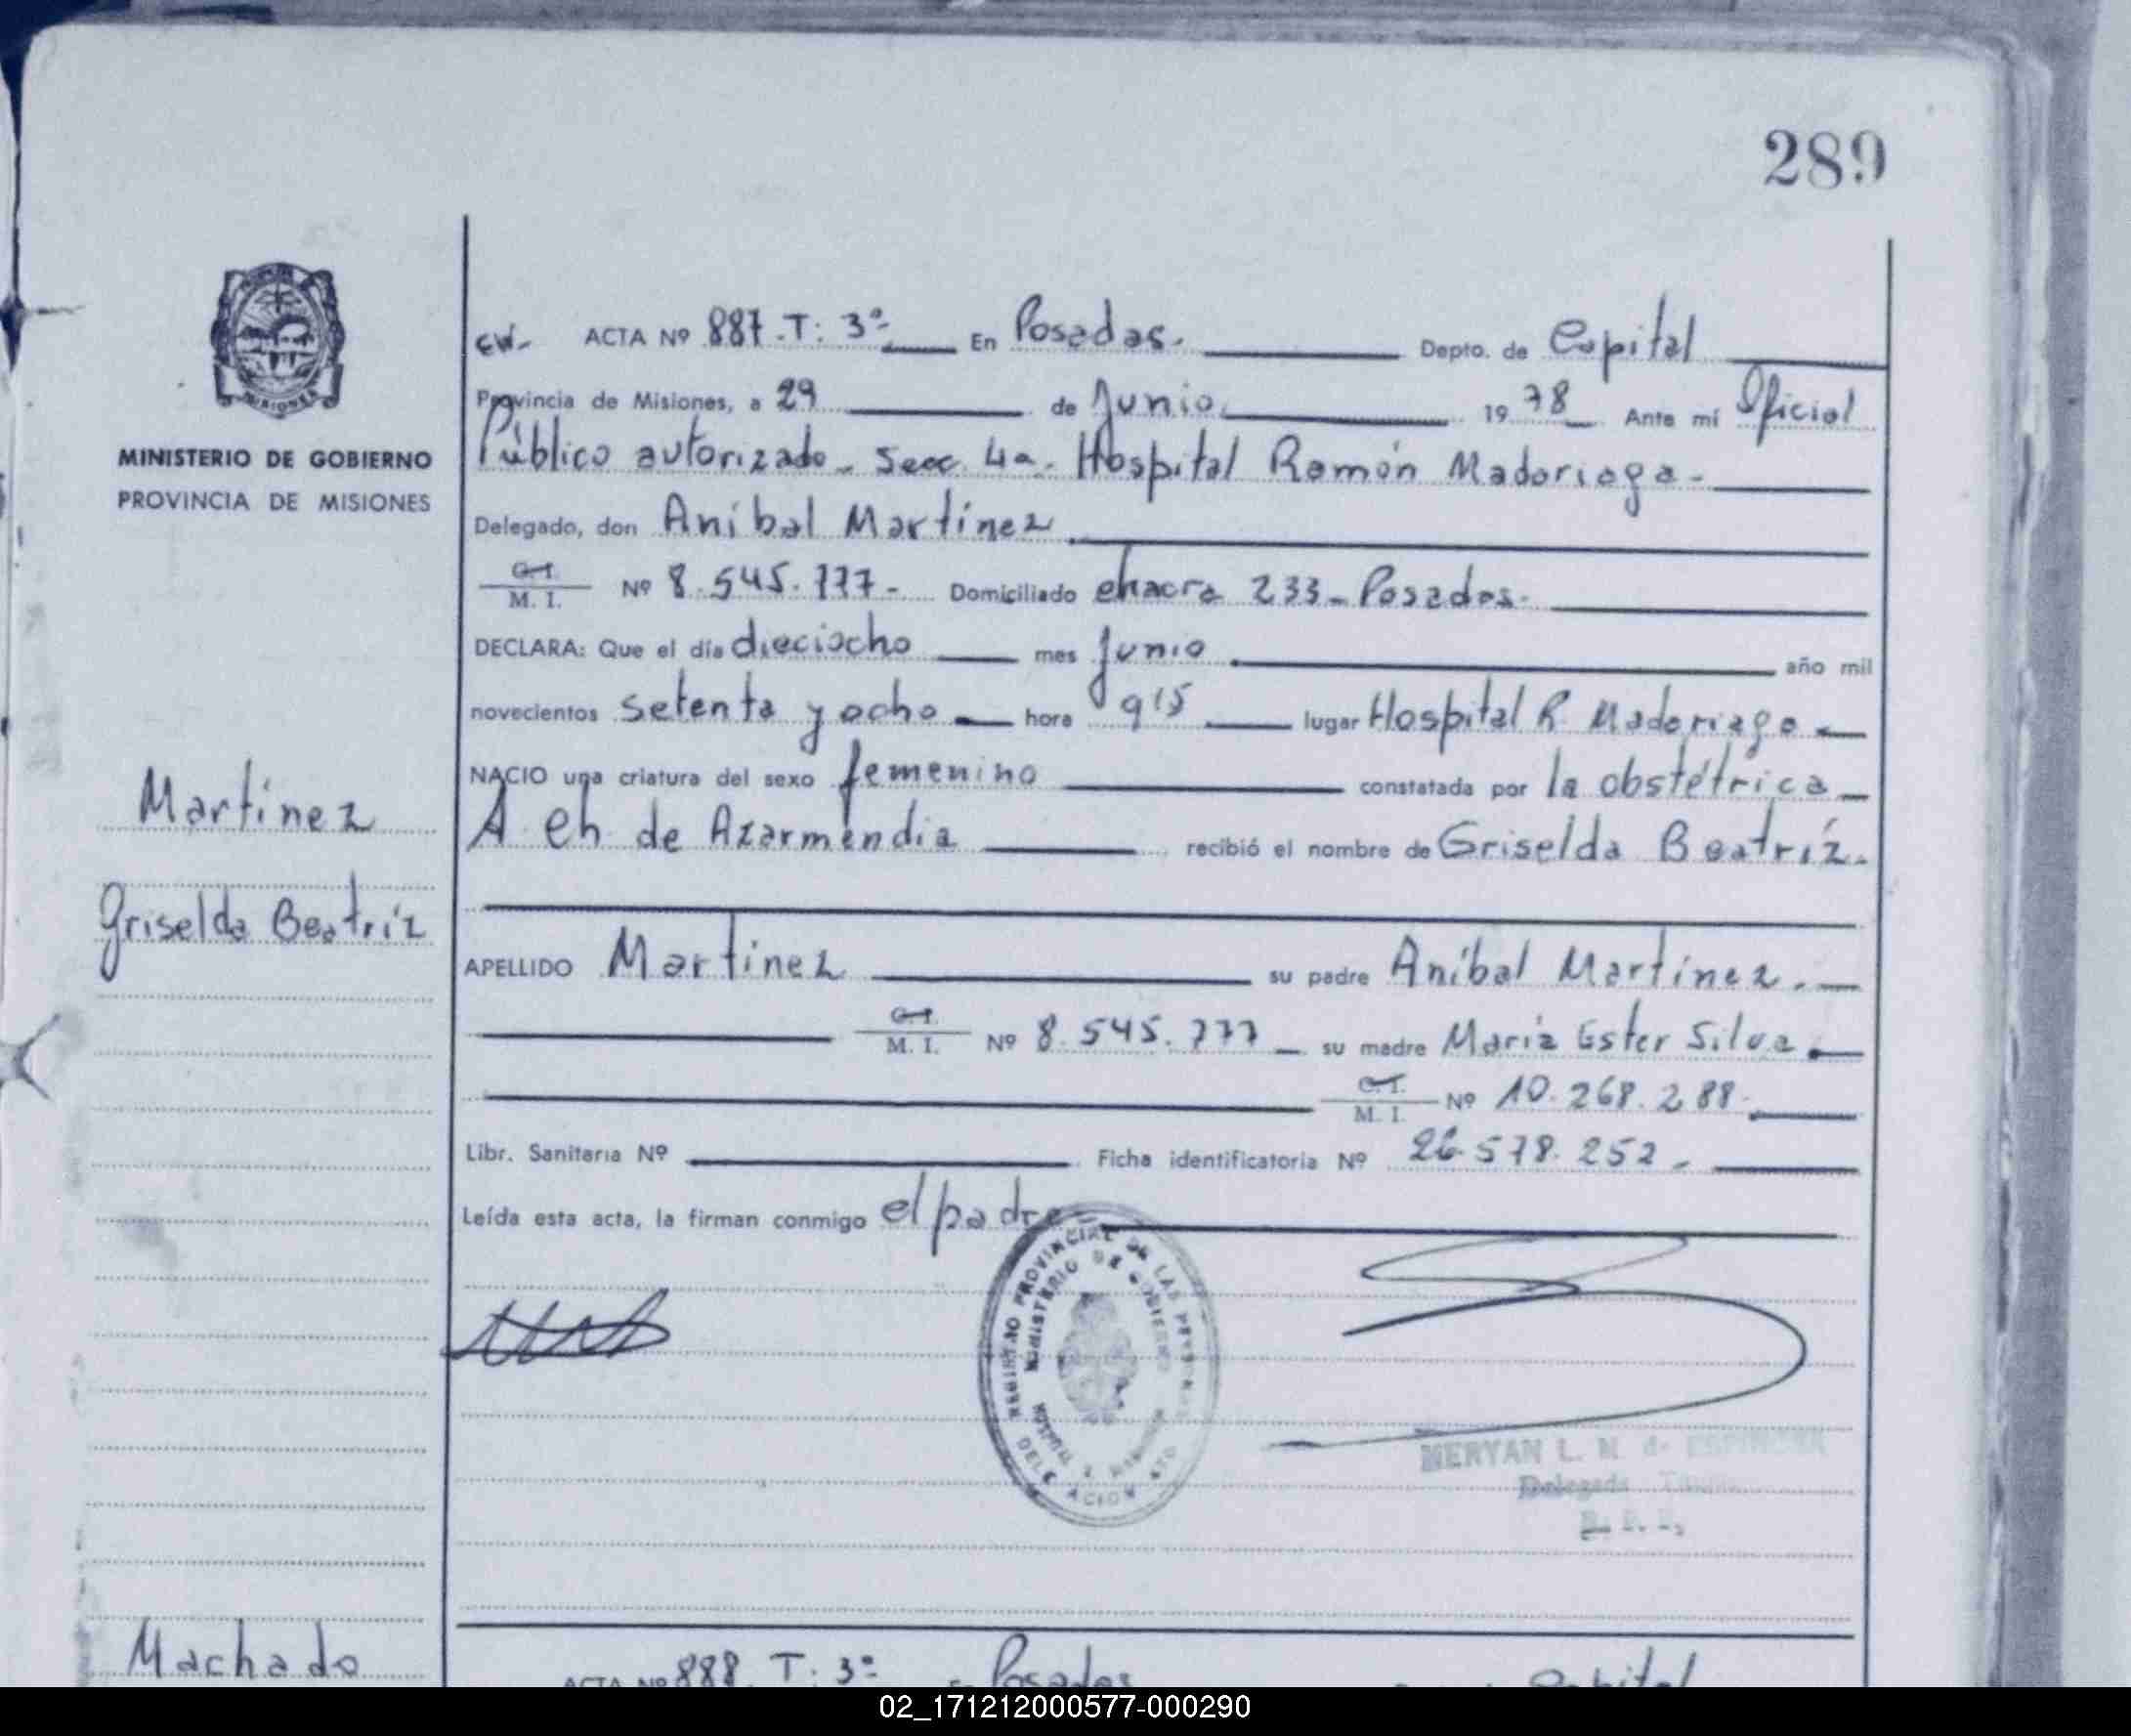 289
MISIONES
MINISTERIO DE GOBIERNO
PROVINCIA DE MISIONES
ACTA Nº 887. T: 3º En Posadas. Depto. de Capital
Provincia de Misiones, a 29 de Junio 1978 Ante mí Oficial
Público autorizado - Secc. 4a. Hospital Ramón Madariaga -
Delegado, don Aníbal Martínez
C.I. M. I. Nº 8.545.777 - Domiciliado chacra 233 - Posadas.
DECLARA: Que el día dieciocho mes Junio año mil
novecientos setenta y ocho hora 915 lugar Hospital R. Madariaga
NACIO una criatura del sexo femenino constatada por la obstétrica
A Ch de Azarmendia recibió el nombre de Griselda Beatríz.
APELLIDO Martínez su padre Aníbal Martínez.
C.I. M. I. Nº 8.545.777 su madre María Ester Silva.
C.I. M. I. Nº 10.268.288.
Libr. Sanitaria Nº Ficha identificatoria Nº 26.578.252 -
Leída esta acta, la firman conmigo el padre
Martínez
Griselda Beatríz
REGISTRO PROVINCIAL DE LAS
MINISTERIO DE GOBIERNO
DELEGACION
MERYAN L. M. de ESPINOSA
Delegada
Machado
ACTA Nº 888. T: 3º En Posadas Capital
02_171212000577-000290